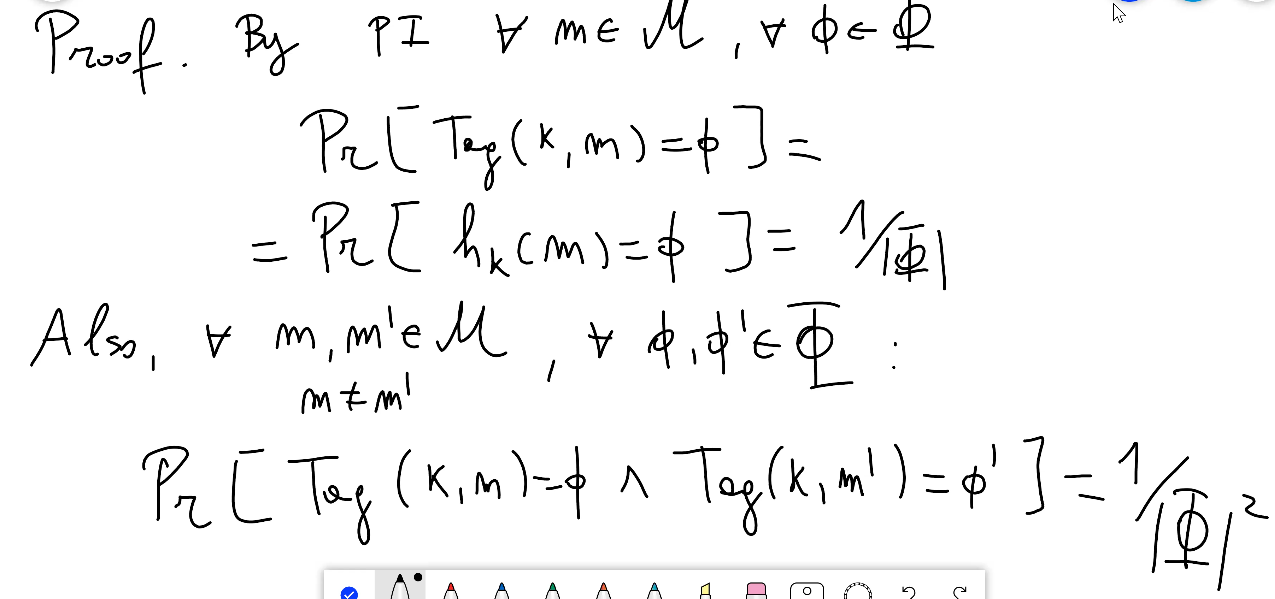 Proof. By PI ∀ m ∈ M, ∀ ϕ ∈ Φ
Pr[Tag(k,m)=ϕ]=
=Pr[h_k(m)=ϕ]= 1/|Φ|
Also, ∀ m,m'∈ M, ∀ ϕ,ϕ'∈ Φ :
m≠m'
Pr[Tag(k,m)=ϕ ∧ Tag(k,m')=ϕ']= 1/|Φ|²